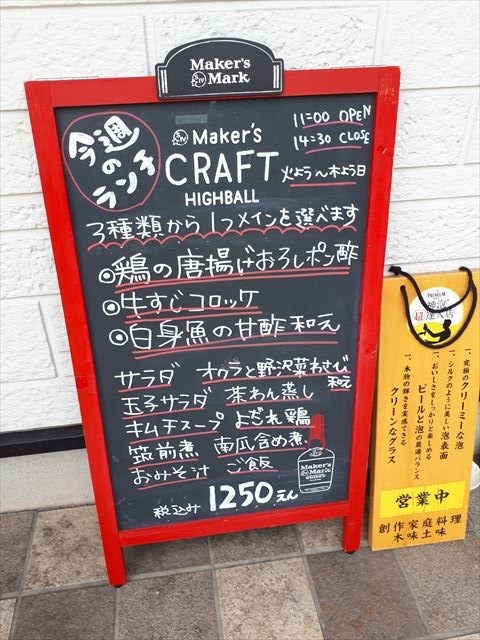 Maker's
Mark
今週
の
ランチ
Maker's
CRAFT
HIGHBALL
11:00 OPEN
14:30 CLOSE
火よう〜木よう日
3種類から1つメインを選べます
◎鶏の唐揚げおろしポン酢
◎牛すじコロッケ
◎白身魚の甘酢和え
サラダ オクラと野沢菜わさび和え
玉子サラダ 茶わん蒸し
キムチスープ よだれ鶏
筑前煮 南瓜含め煮
おみそ汁 ご飯
税込み 1250えん
Maker's
Mark
WHISKY
PREMIUM
神泡
超達人店
一、究極のクリーミーな泡
一、シルクのように美しい泡表面
一、おいしさをしっかりと楽しめる
ビールと泡の最適バランス
一、本物の輝きを実感できる
クリーンなグラス
営業中
創作家庭料理
木味土味